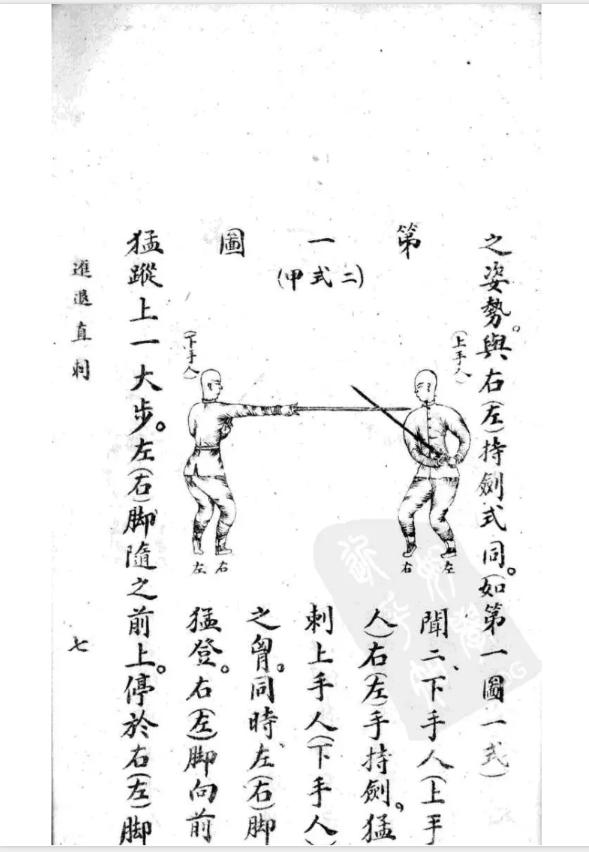 之姿勢。與右(左)持劍式同。(如第一圖一式)
第一圖
(二式甲)
(上手人)
(下手人)
左右
右左
聞二、下手人(上手
人)右(左)手持劍。猛
刺上手人(下手人)
之胷。同時、左(右)脚
猛登。右(左)脚向前
猛蹤上一大步。左(右)脚隨之前上。停於右(左)脚
進退直刺
七